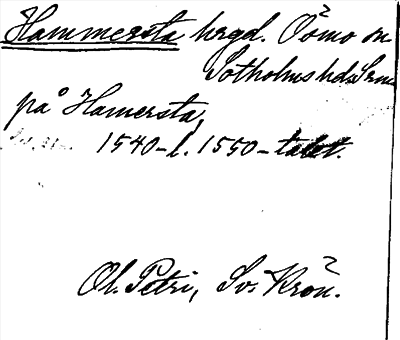 Hammersta hrgd. Ösmo sn
Sotholms hd. Srm.
på Hamersta,
1540- l. 1550-talet.
Ol. Petri, Sv. Krön.